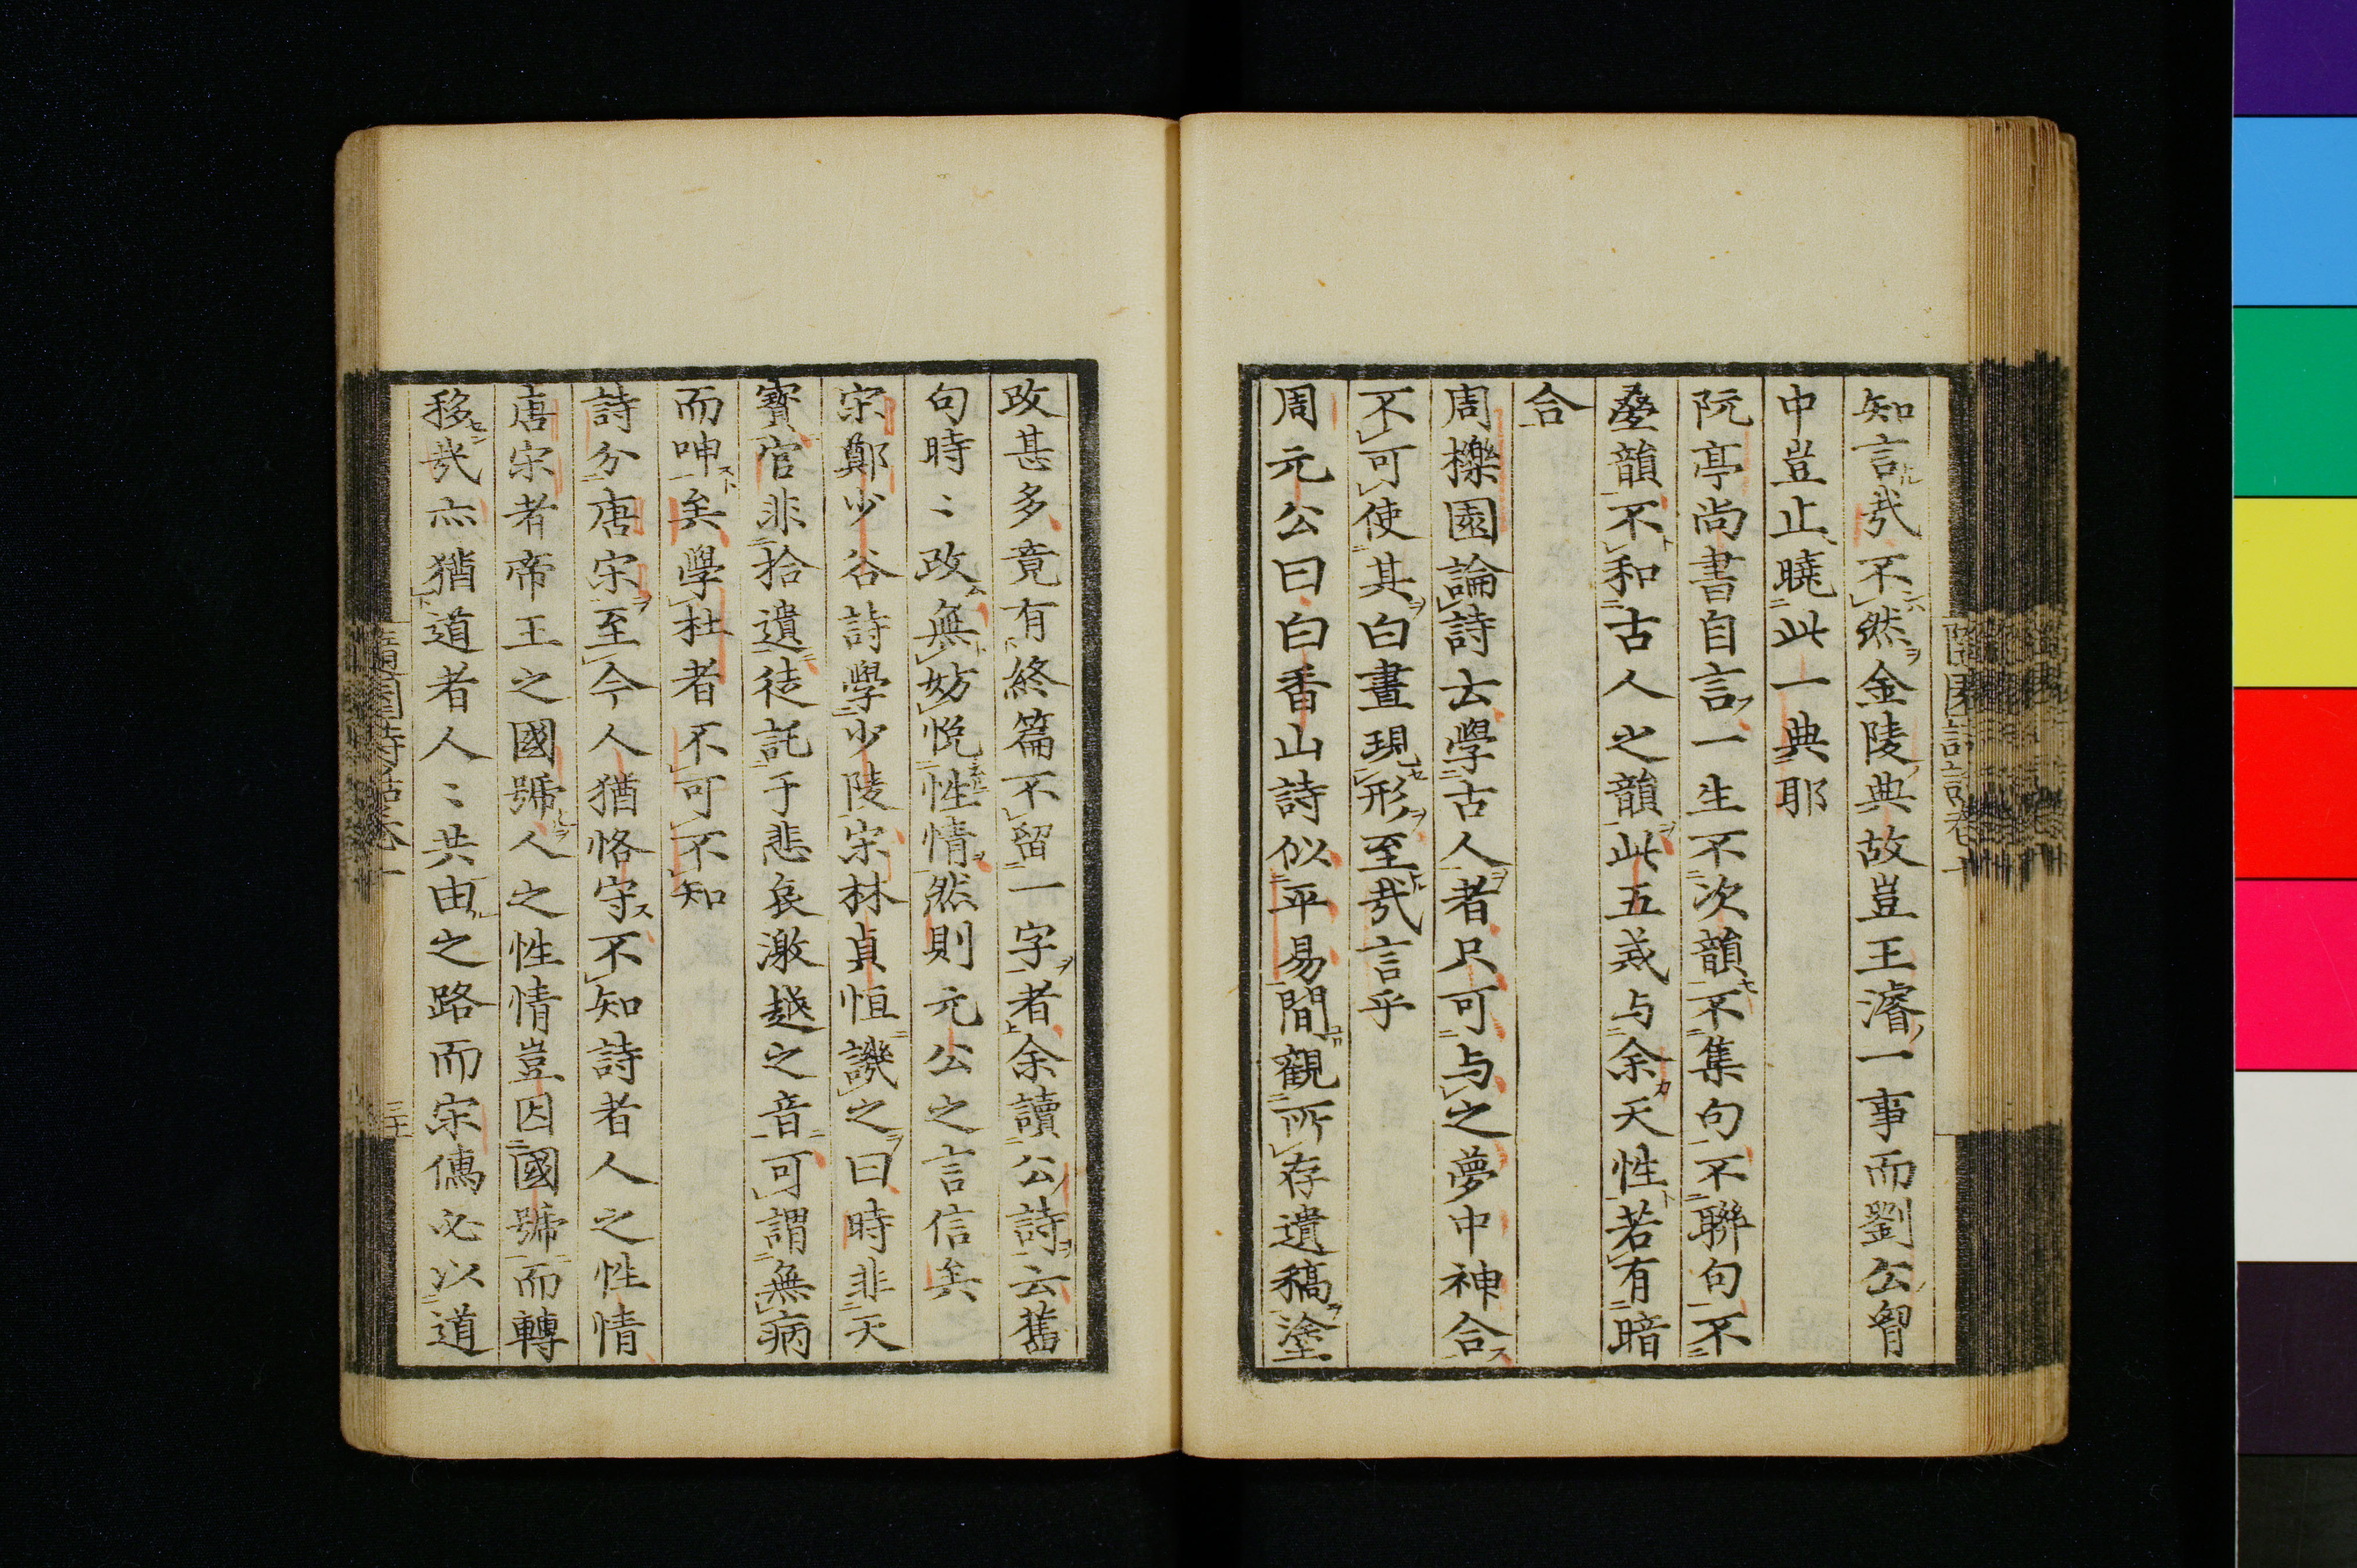 知言哉不然金陵典故豈王濬一事而劉公胷
中豈止曉此一典耶
阮亭尚書自言一生不次韻不集句不聯句不
疊韻不和古人之韻此五戒与余天性若有暗
合
周櫟園論詩云學古人者只可与之夢中神合
不可使其白晝現形至哉言乎
周元公曰白香山詩似平易間觀所存遺稿塗
改甚多竟有終篇不留一字者余讀公詩云舊
句時〻改無妨悅性情然則元公之言信矣
宋鄭少谷詩學少陵宋林貞恒譏之曰時非天
寶官非拾遺徒託于悲哀激越之音可謂無病
而呻矣學杜者不可不知
詩分唐宋至今人猶恪守不知詩者人之性情
唐宋者帝王之國號人之性情豈因國號而轉
移哉亦猶道者人〻共由之路而宋儒必以道